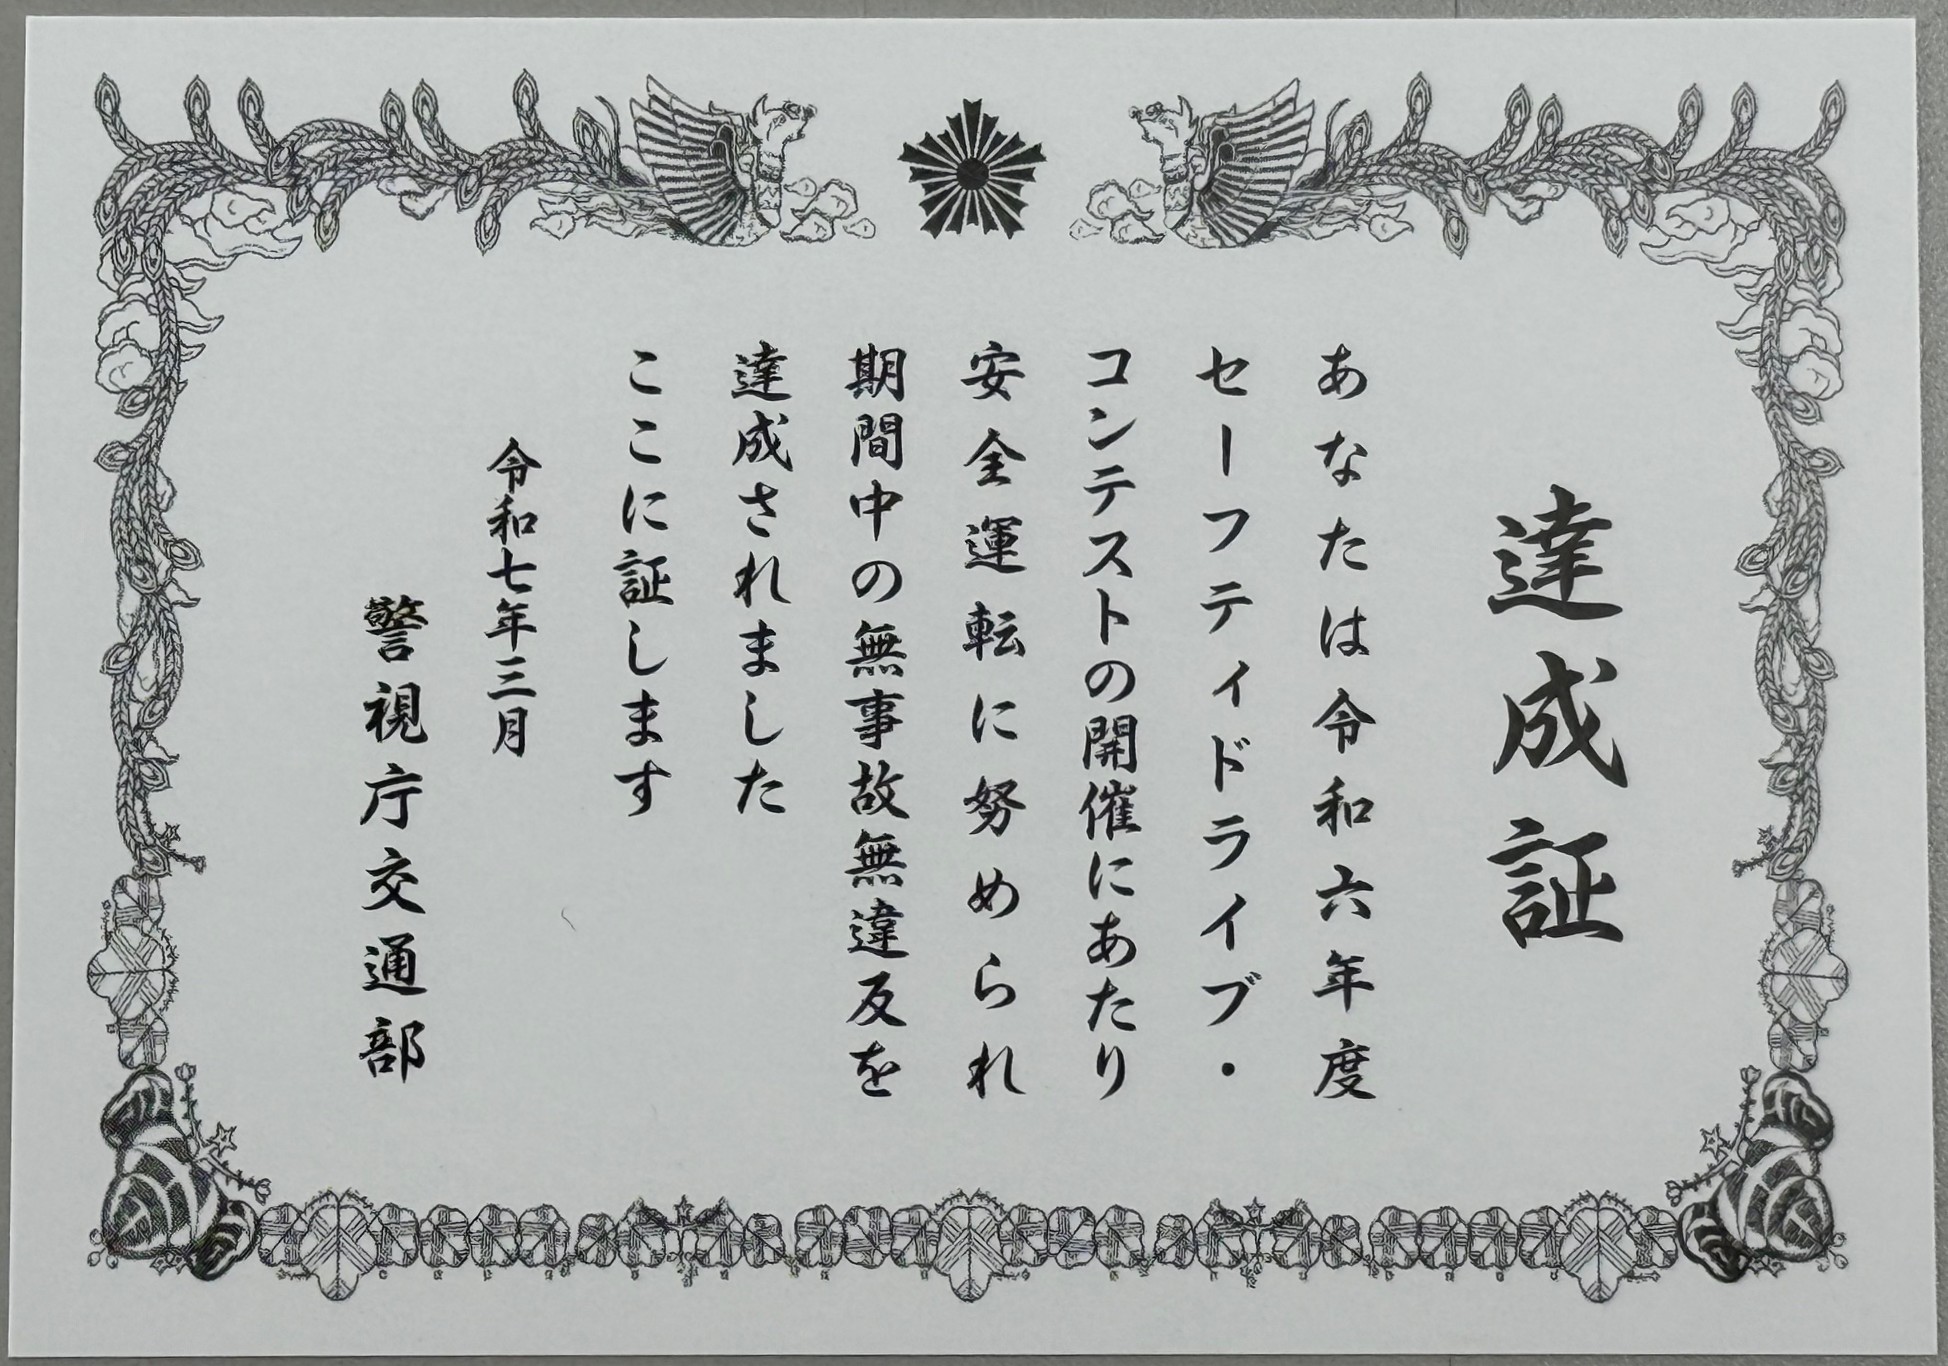 達成証
あなたは令和六年度
セーフティドライブ・
コンテストの開催にあたり
安全運転に努められ
期間中の無事故無違反を
達成されました
ここに証します
令和七年三月
警視庁交通部